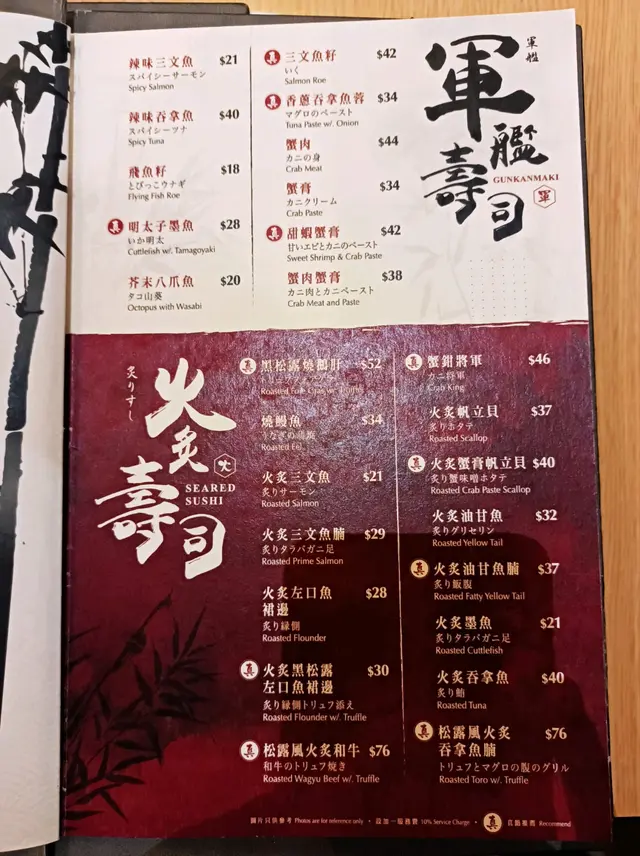 軍艦
軍艦壽司
GUNKANMAKI
軍
辣味三文魚 $21
スパイシーサーモン
Spicy Salmon
辣味吞拿魚 $40
スパイシーツナ
Spicy Tuna
飛魚籽 $18
とびっこウナギ
Flying Fish Roe
真 明太子墨魚 $28
いか明太
Cuttlefish w/. Tamagoyaki
芥末八爪魚 $20
タコ山葵
Octopus with Wasabi
真 三文魚籽 $42
いく
Salmon Roe
真 香蔥吞拿魚蓉 $34
マグロのペースト
Tuna Paste w/. Onion
蟹肉 $44
カニの身
Crab Meat
蟹膏 $34
カニクリーム
Crab Paste
真 甜蝦蟹膏 $42
甘いエビとカニのペースト
Sweet Shrimp & Crab Paste
蟹肉蟹膏 $38
カニ肉とカニペースト
Crab Meat and Paste
炙りすし
火炙壽司
火
SEARED
SUSHI
真 黑松露燒鵝肝 $52
Roasted Foie Gras w/. Truffle
燒鰻魚 $34
うなぎの蒲焼
Roasted Eel
火炙三文魚 $21
炙りサーモン
Roasted Salmon
火炙三文魚腩 $29
炙りタラバガニ足
Roasted Prime Salmon
火炙左口魚 $28
裙邊
炙り縁側
Roasted Flounder
真 火炙黑松露 $30
左口魚裙邊
炙り縁側トリュフ添え
Roasted Flounder w/. Truffle
真 松露風火炙和牛 $76
和牛のトリュフ焼き
Roasted Wagyu Beef w/. Truffle
真 蟹鉗將軍 $46
カニ将軍
Crab King
火炙帆立貝 $37
炙りホタテ
Roasted Scallop
真 火炙蟹膏帆立貝 $40
炙り蟹味噌ホタテ
Roasted Crab Paste Scallop
火炙油甘魚 $32
炙りグリセリン
Roasted Yellow Tail
真 火炙油甘魚腩 $37
炙り飯腹
Roasted Fatty Yellow Tail
火炙墨魚 $21
炙りタラバガニ足
Roasted Cuttlefish
火炙吞拿魚 $40
炙り鮪
Roasted Tuna
真 松露風火炙 $76
吞拿魚腩
トリュフとマグロの腹のグリル
Roasted Toro w/. Truffle
圖片只供參考 Photos are for reference only • 設加一服務費 10% Service Charge • 真 真誠推薦 Recommend